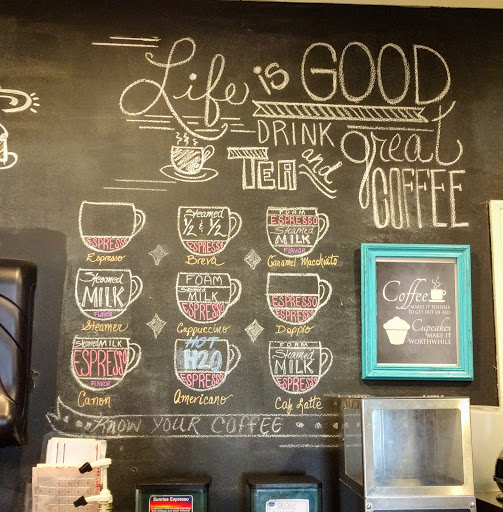 Life is GOOD
DRINK great
TEA and COFFEE
ESPRESSO
Espresso
Steamed
½ & ½
ESPRESSO
Breva
FOAM
Steamed
MILK
ESPRESSO
FLAVOR
Caramel Macchiato
Steamed
MILK
FLAVOR
Steamer
FOAM
Steamed
MILK
ESPRESSO
Cappuccino
ESPRESSO
ESPRESSO
Doppio
Steamed MILK
ESPRESSO
FLAVOR
Canon
HOT
H2O
ESPRESSO
Americano
FOAM
Steamed
MILK
ESPRESSO
Cafe Latte
KNOW YOUR COFFEE
Coffee
MAKES IT POSSIBLE
TO GET OUT OF BED
Cupcakes
MAKE IT
WORTHWHILE
Sunrise Espresso